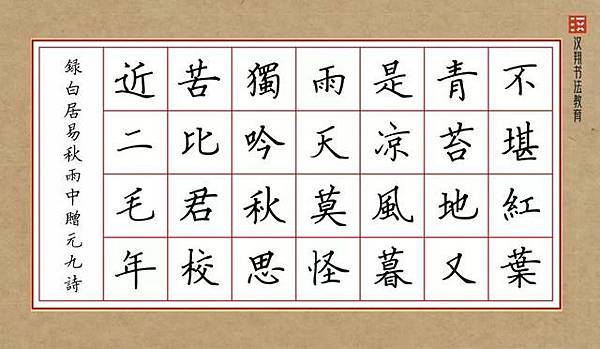 不堪紅葉
青苔地又
是凉風暮
雨天莫怪
獨吟秋思
苦比君校
近二毛年
録白居易秋雨中贈元九詩
汉翔书法教育